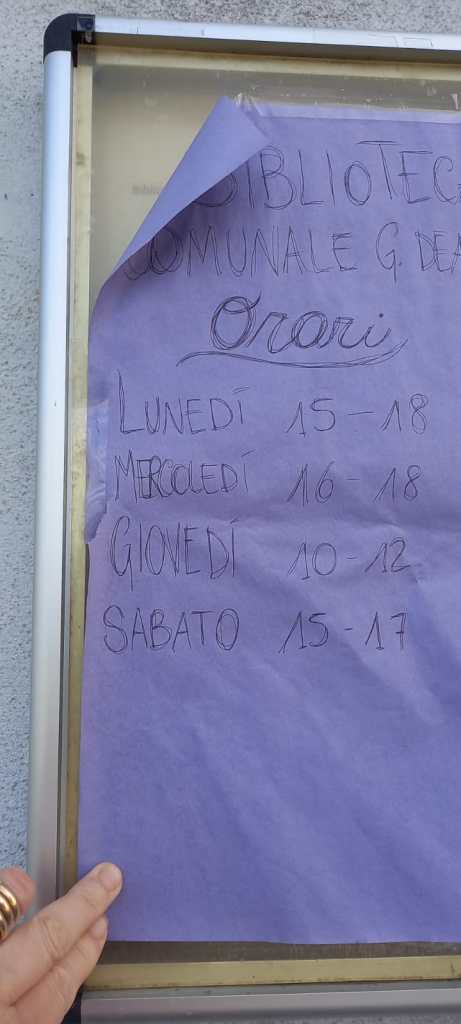 BIBLIOTEC
COMUNALE G. DEA
Orari
LUNEDÍ 15-18
MERCOLEDÍ 16-18
GIOVEDÍ 10-12
SABATO 15-17